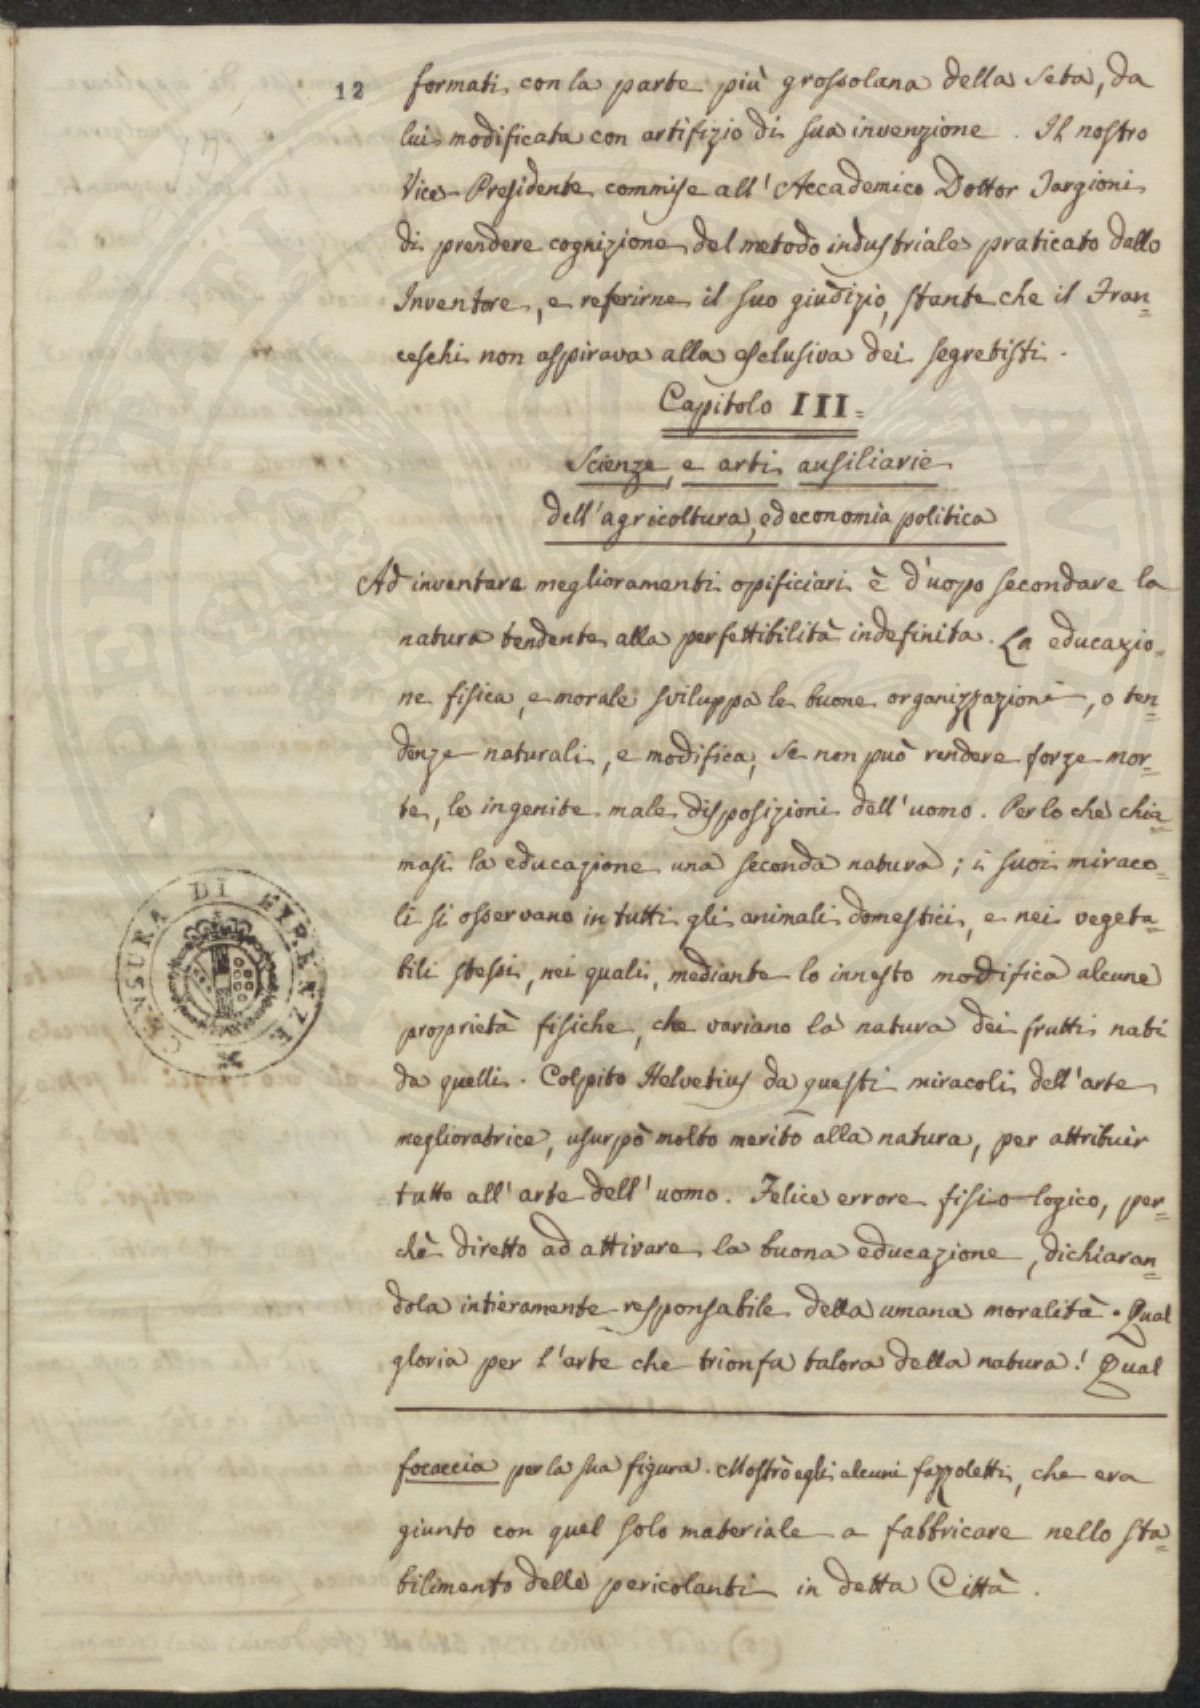 12
formati con la parte più grossolana della Seta, da
lui modificata con artifizio di sua invenzione. Il nostro
Vice-Presidente commise all'Accademico Dottor Targioni
di prendere cognizione del metodo industriale praticato dallo
Inventore, e referirne il suo giudizio, stante che il Fran=
ceschi non aspirava alla esclusiva dei segretisti.
Capitolo III=
Scienze, e arti ausiliarie
dell'agricoltura, ed economia politica
Ad inventare miglioramenti opificiari è d'uopo secondare la
natura tendente alla perfettibilità indefinita. La educazio=
ne fisica, e morale sviluppa le buone organizzazioni, o ten=
denze naturali, e modifica, se non può rendere forze mor=
te, le ingenite male disposizioni dell'uomo. Per lo che chia=
masi la educazione una seconda natura; i suoi miraco=
li si osservano in tutti gli animali domestici, e nei vegeta=
bili stessi, nei quali, mediante lo innesto modifica alcune
proprietà fisiche, che variano la natura dei frutti nati
da quelli. Colpito Helvetius da questi miracoli dell'arte
meglioratrice, usurpò molto merito alla natura, per attribuir
tutto all'arte dell'uomo. Felice errore fisio-logico, per=
chè diretto ad attivare la buona educazione, dichiaran=
dola intieramente responsabile della umana moralità. Qual
gloria per l'arte che trionfa talora della natura! Qual
focaccia per la sua figura. Mostrò egli alcuni fazzoletti, che era
giunto con quel solo materiale a fabbricare nello sta=
bilimento delle pericolanti in detta Città.
CENSURA DI FIRENZE